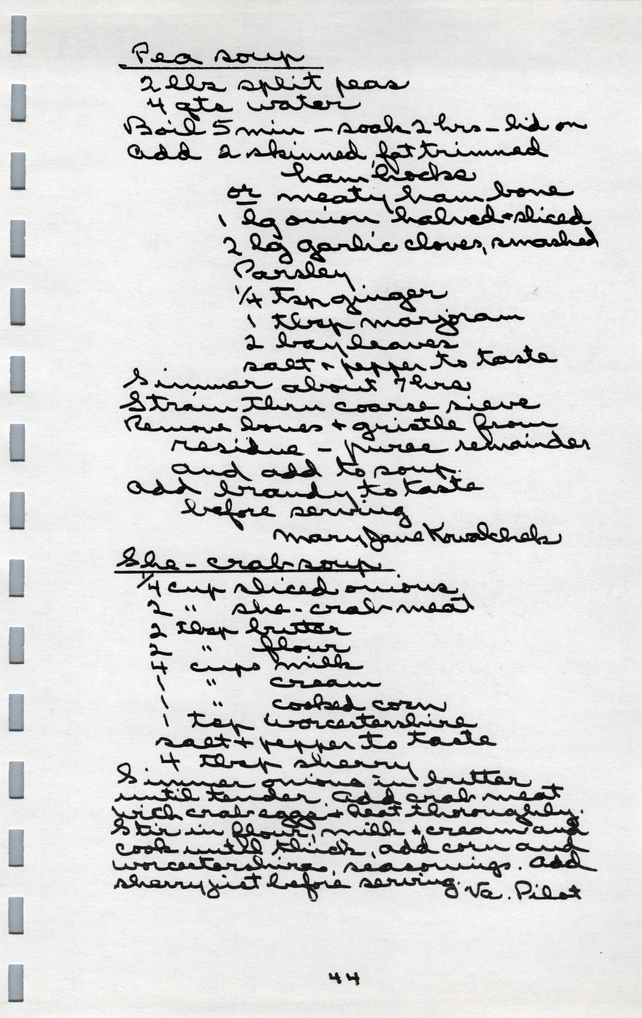 Pea soup
2 lbs split peas
4 qts water
Boil 5 min - soak 2 hrs - lid on
Add 2 skinned, fat trimmed
ham hocks
or meaty ham bone
1 lg onion halved + sliced
2 lg garlic cloves, smashed
Parsley
1/4 tsp ginger
1 tbsp marjoram
2 bay leaves
salt + pepper to taste
Simmer about 7 hrs
Strain thru coarse sieve
Remove bones + gristle from
residue - puree remainder
and add to soup.
Add brandy to taste
before serving
Mary Jane Kowalchek
She-crab soup
1/4 cup sliced onions
2 " she-crab meat
2 tbsp butter
2 " flour
4 cups milk
1 " cream
1 " cooked corn
1 tsp worcestershire
salt + pepper to taste
4 tbsp sherry
Simmer onions in butter
until tender. Add crab meat
with crab eggs + heat thoroughly.
Stir in flour, milk + cream and
cook until thick, add corn and
worcestershire, seasonings. Add
sherry just before serving. Va. Pilot
44